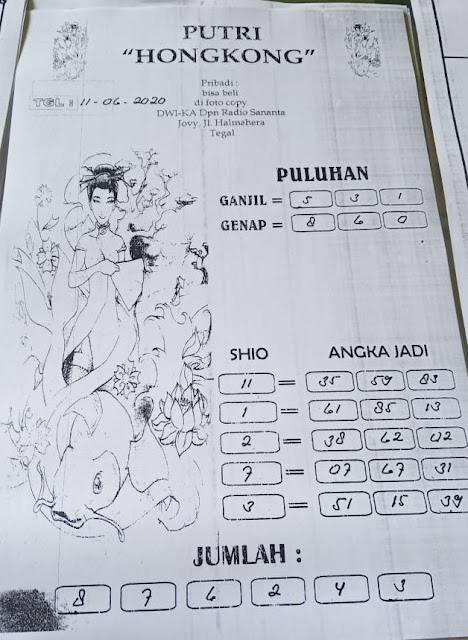 PUTRI
"HONGKONG"
Pribadi :
bisa beli
di foto copy
DWI-KA Dpn Radio Sananta
Jovy, Jl. Halmahera
Tegal
TGL : 11-06-2020
PULUHAN
GANJIL = 5 3 1
GENAP = 8 6 0
SHIO ANGKA JADI
11 = 35 59 83
1 = 61 85 13
2 = 38 62 02
7 = 07 67 31
3 = 51 15 39
JUMLAH :
8 7 6 2 4 3